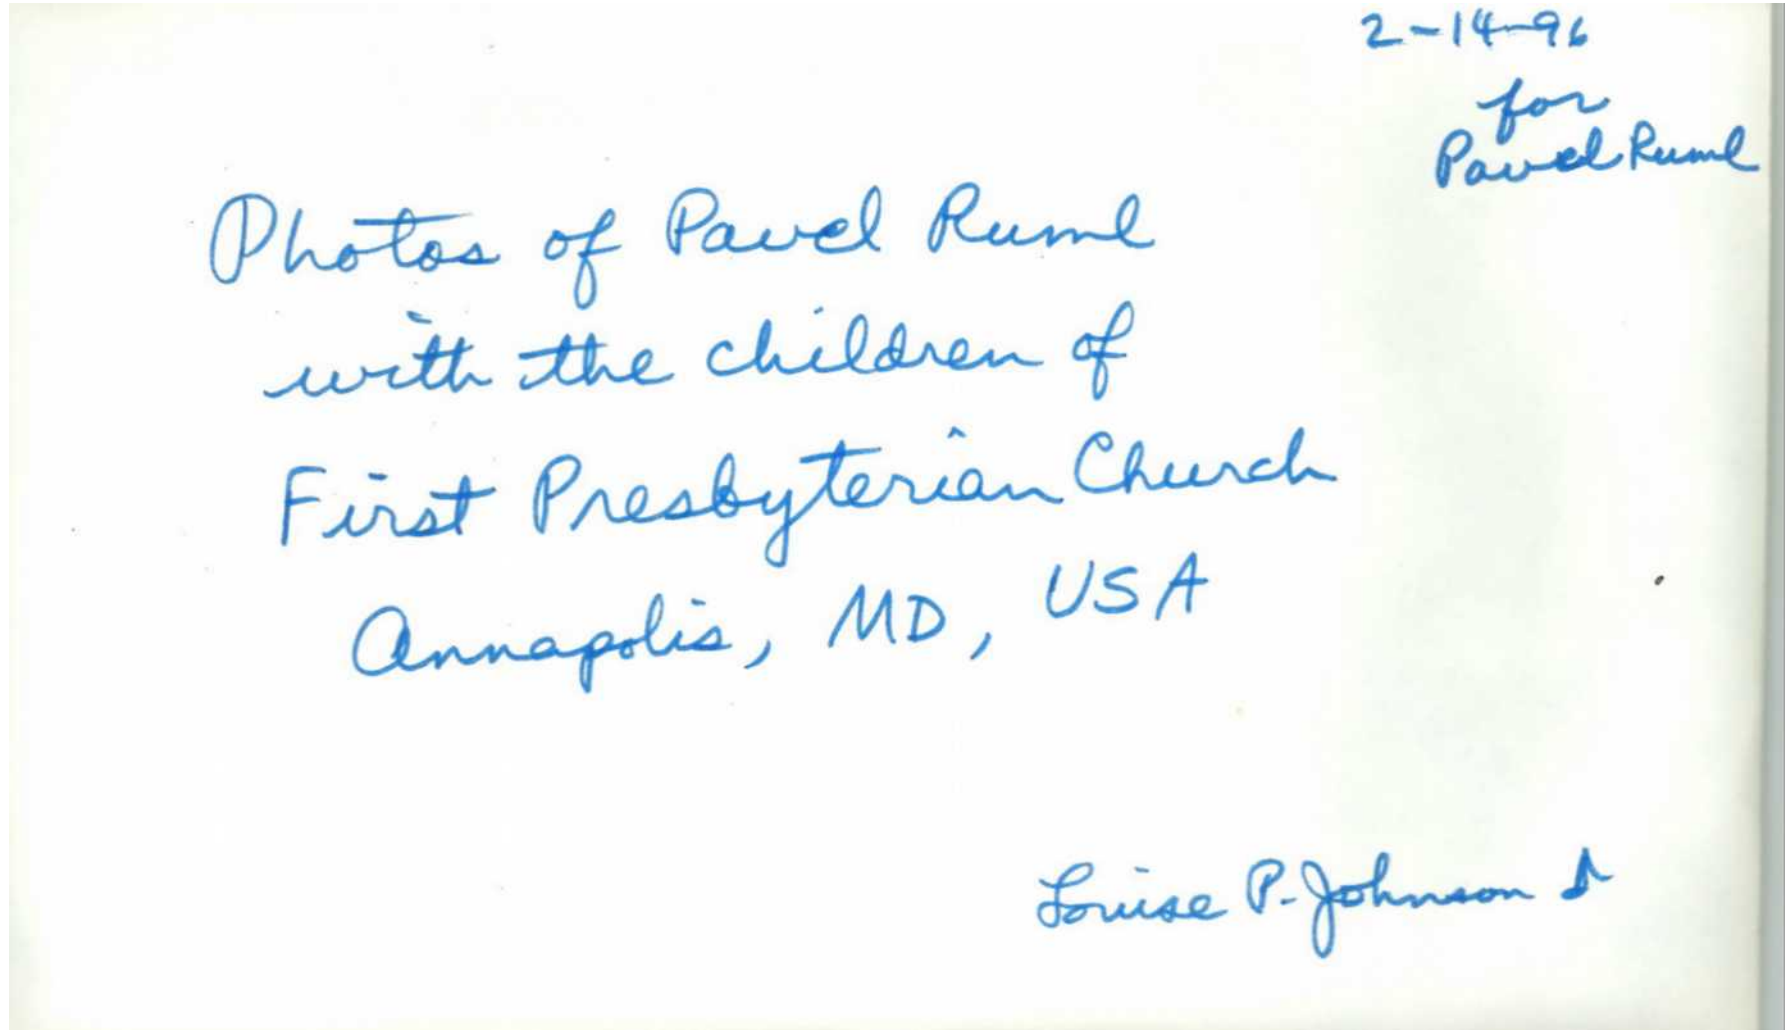 2-14-96
for
Pavel Ruml
Photos of Pavel Ruml
with the children of
First Presbyterian Church
Annapolis, MD, USA
Louise P. Johnson ♪